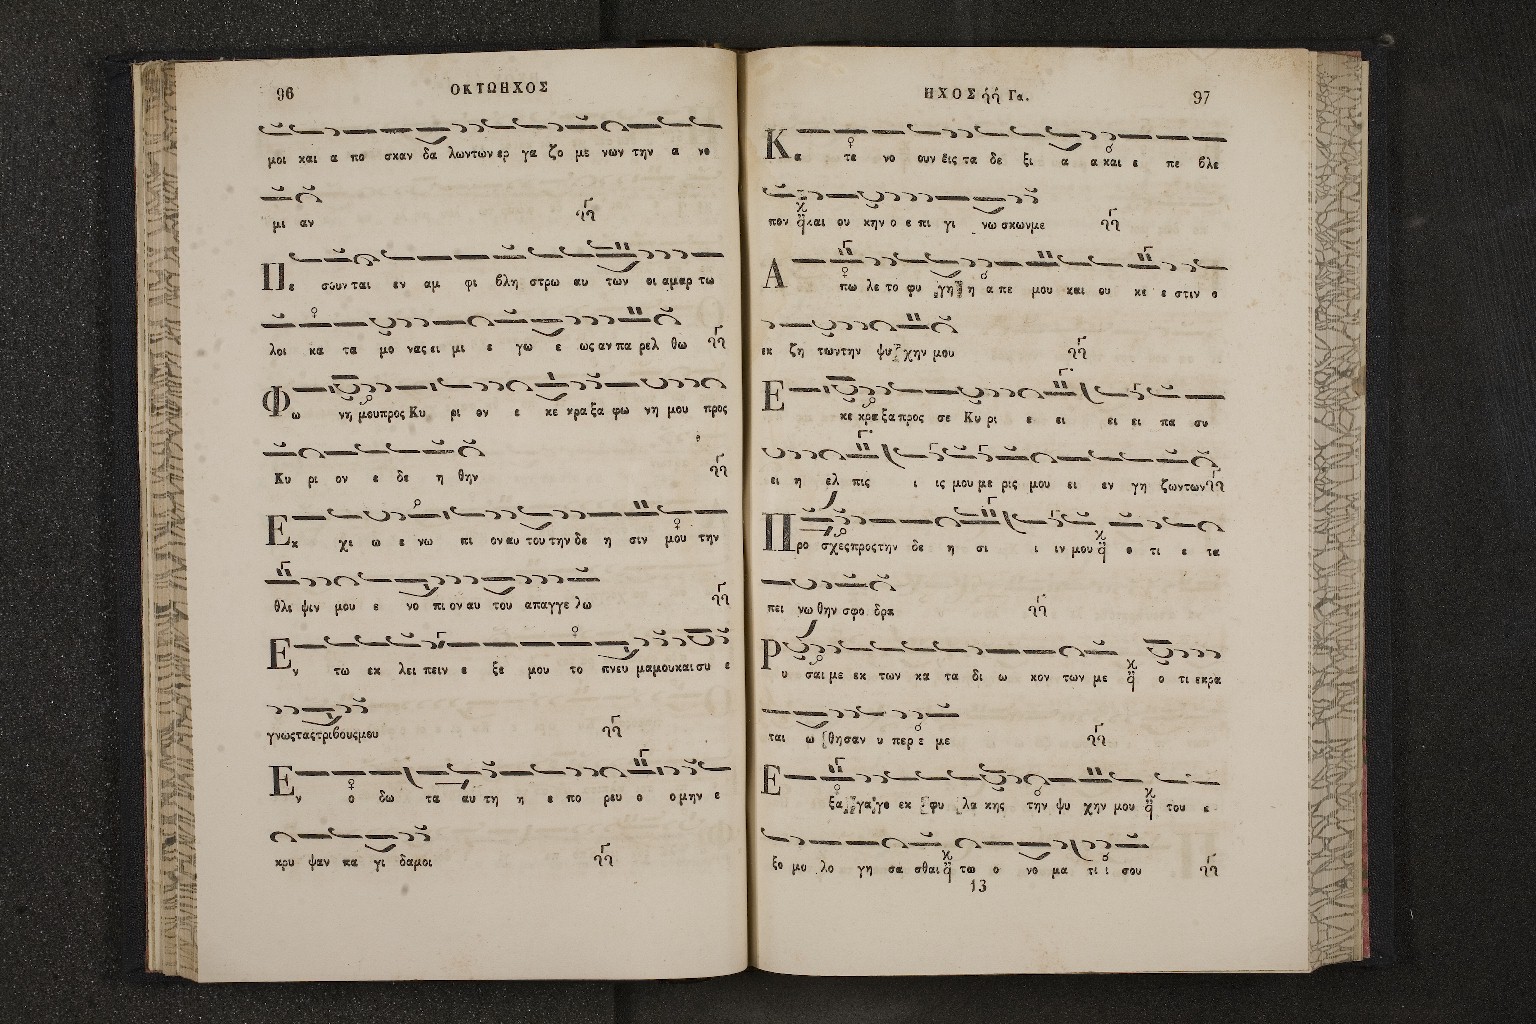 96
ΟΚΤΩΗΧΟΣ
μοι και α πο σκαν δα λων των ερ γα ζο με νων την α νο
μι αν
Πε σουν ται εν αμ φι βλη στρω αυ των οι αμαρ τω
λοι κα τα μο νας ει μι ε γω ε ως αν πα ρελ θω
Φω νη μου προς Κυ ρι ον ε κε κρα ξα φω νη μου προς
Κυ ρι ον ε δε η θην
Εκ χι ω ε νω πι ον αυ του την δε η σιν μου την
θλι ψιν μου ε νο πι ον αυ του απαγγε λω
Εν τω εκ λει πειν ε ξε μου το πνευ μα μου και συ ε
γνως τας τριβους μου
Εν ο δω τα αυ τη η ε πο ρευ ο ο μην ε
κρυ ψαν πα γι δα μοι
ΗΧΟΣ ἠἠ Γα.
97
Κα τε νο ουν εις τα δε ξι α α και ε πε βλε
πον και ου κην ο ε πι γι νω σκων με
Α πω λε το φυ γη η α πε μου και ου κε ε στιν ο
εκ ζη των την ψυ χην μου
Ε κε κρα ξα προς σε Κυ ρι ε ει ει ει πα συ
ει η ελ πις ι ις μου με ρις μου ει εν γη ζωντων
Προ σχες προς την δε η σι ι ιν μου ο τι ε τα
πει νω θην σφο δρα
Ρυ σαι με εκ των κα τα δι ω κον των με ο τι εκρα
ται ω θησαν υ περ ε με
Ε ξα γα γε εκ φυ λα κης την ψυ χην μου του ε
ξο μο λο γη σα σθαι τω ο νο μα τι ι σου
13